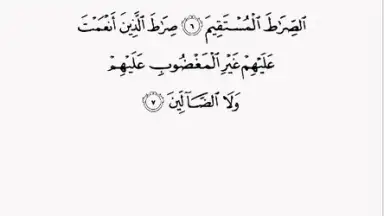 الصِّرَٰطَ الْمُسْتَقِيمَ ٦ صِرَٰطَ الَّذِينَ أَنْعَمْتَ
عَلَيْهِمْ غَيْرِ الْمَغْضُوبِ عَلَيْهِمْ
وَلَا الضَّآلِّينَ ٧